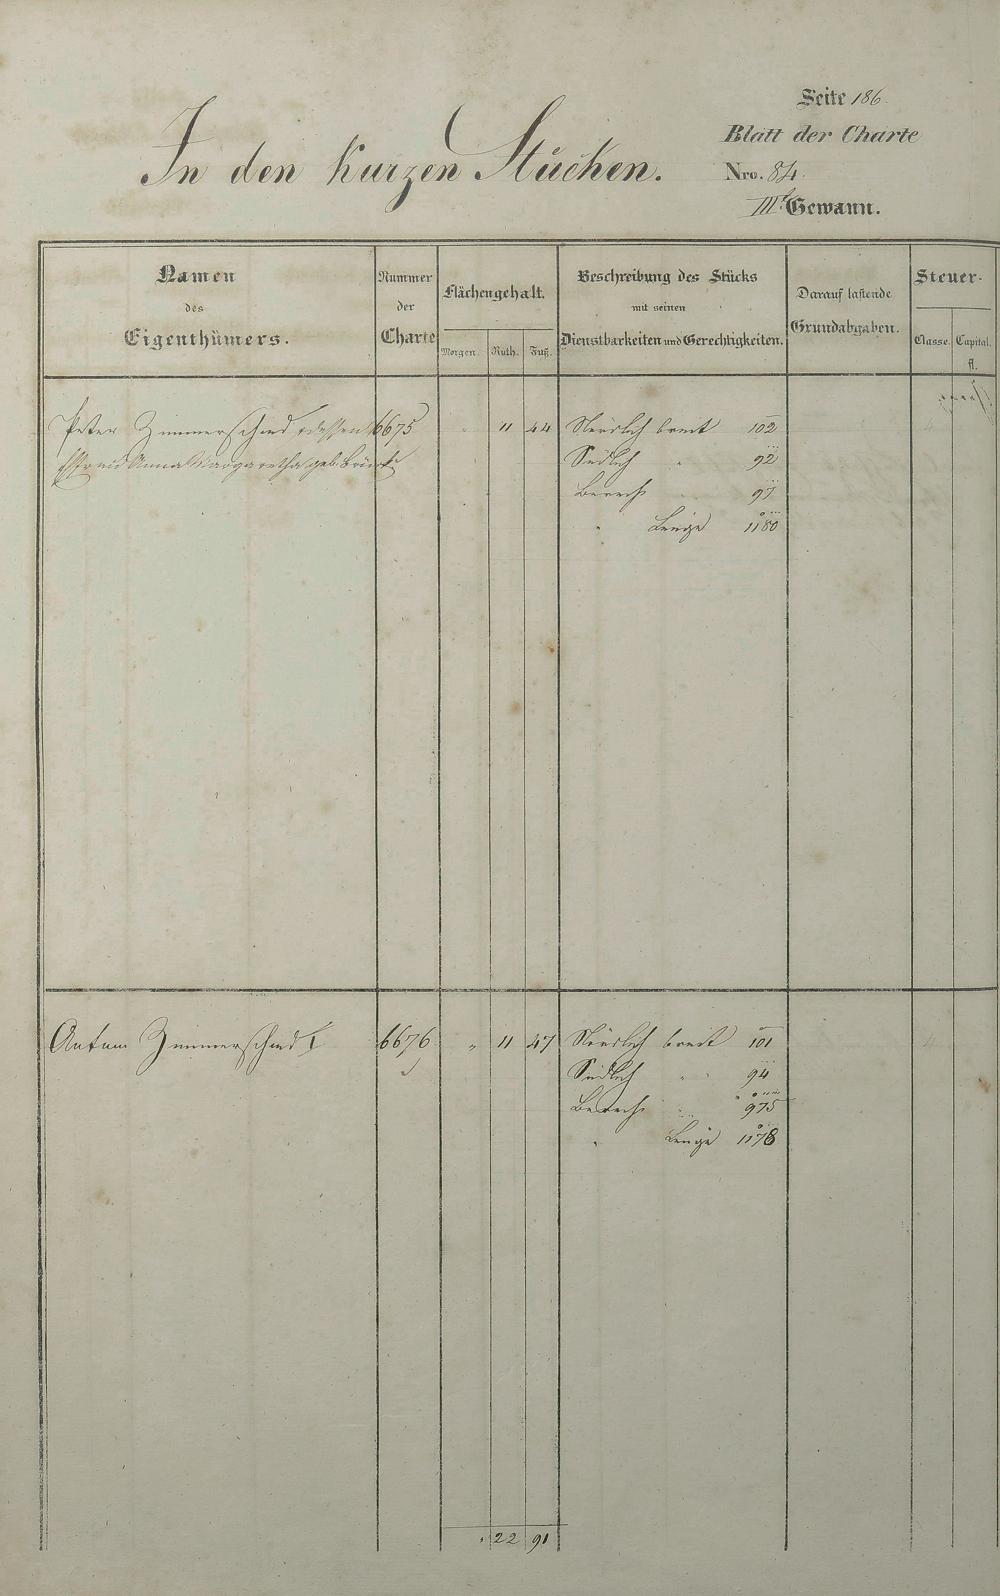 Seite 186.
Blatt der Charte
In den kurzen Stücken.
Nro. 84.
IIIt Gewann.
Namen
des
Eigenthümers.
Nummer
der
Charte
Flächengehalt.
Morgen. Ruth. Fuß.
Beschreibung des Stücks
mit seinen
Dienstbarkeiten und Gerechtigkeiten.
Darauf lastende
Grundabgaben.
Steuer-
Classe. Capital.
fl.
Peter Zimmerschied &dessen 6675 " 11 44 Nördlich breit 102
Ehefrau Anna Margaretha geb. Südlich " 92
Berech. " 97
" Länge 1180
Anton Zimmerschied I 6676 " 11 47 Nördlich breit 101
Südlich " " 94
Berech. " 975
" Länge 1178
" 22 91